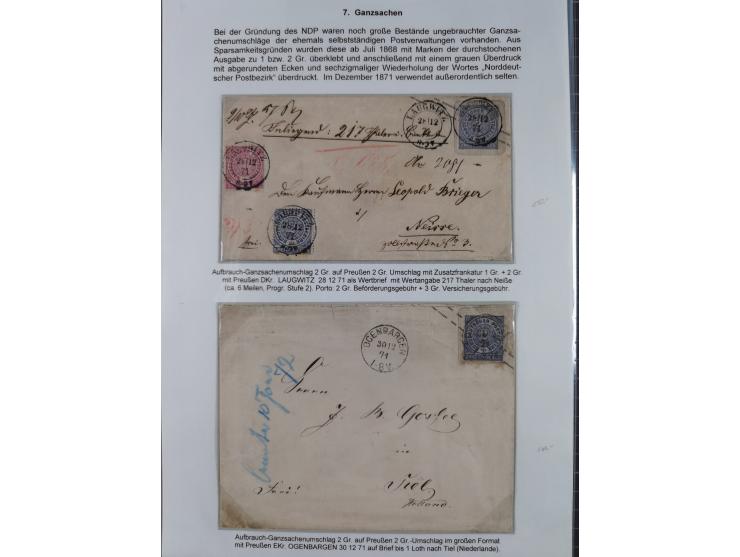 7. Ganzsachen
Bei der Gründung des NDP waren noch große Bestände ungebrauchter Ganzsa-
chenumschläge der ehemals selbstständigen Postverwaltungen vorhanden. Aus
Sparsamkeitsgründen wurden diese ab Juli 1868 mit Marken der durchstochenen
Ausgabe zu 1 bzw. 2 Gr. überklebt und anschließend mit einem grauen Überdruck
mit abgerundeten Ecken und sechzigmaliger Wiederholung der Wortes „Norddeut-
scher Postbezirk" überdruckt. Im Dezember 1871 verwendet außerordentlich selten.
LAUGWITZ
28/12
71
217 Thaler
No 2081
Leopold Brieger
Neisse
Aufbrauch-Ganzsachenumschlag 2 Gr. auf Preußen 2 Gr. Umschlag mit Zusatzfrankatur 1 Gr. + 2 Gr.
mit Preußen DKr. LAUGWITZ 28 12 71 als Wertbrief mit Wertangabe 217 Thaler nach Neiße
(ca. 6 Meilen, Progr. Stufe 2). Porto: 2 Gr. Beförderungsgebühr + 3 Gr. Versicherungsgebühr.
OGENBARGEN
30 12
71
Herrn
in
Tiel
Holland
Aufbrauch-Ganzsachenumschlag 2 Gr. auf Preußen 2 Gr.-Umschlag im großen Format
mit Preußen EKr. OGENBARGEN 30 12 71 auf Brief bis 1 Loth nach Tiel (Niederlande).